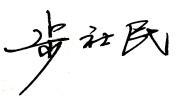 步社民